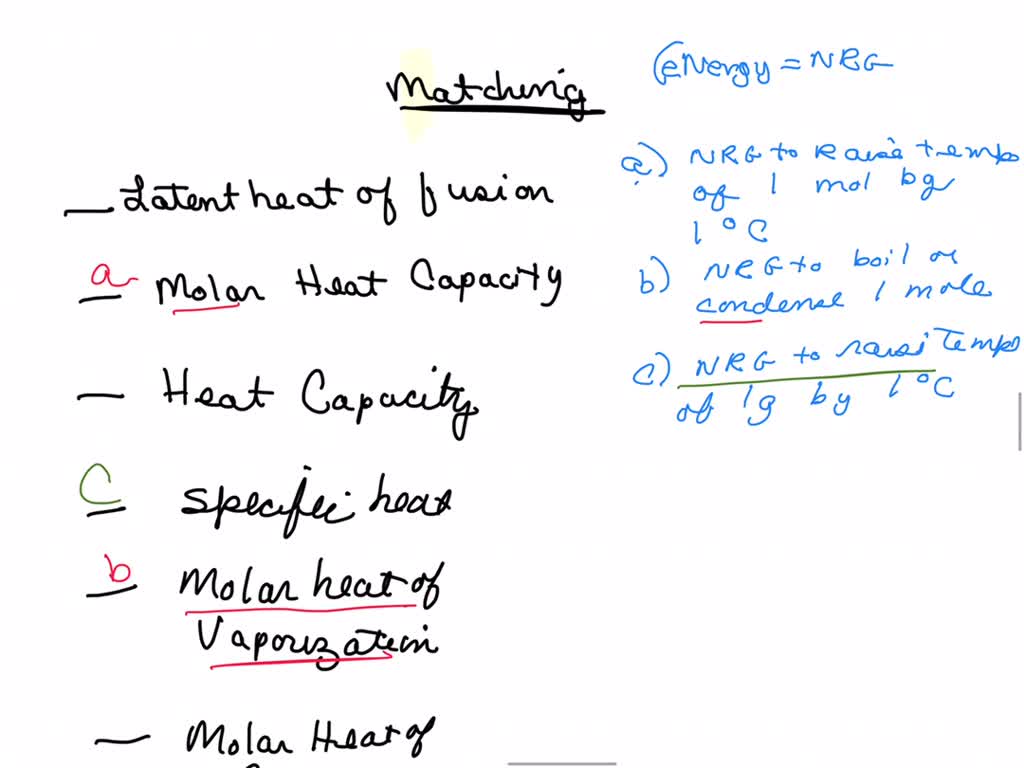 Matching
(eNergy = NRG
__ Latent heat of fusion
a Molar Heat Capacity
__ Heat Capacity
C Specific heat
b Molar heat of
Vaporization
__ Molar Heat of
a) NRG to Raise temp
of 1 mol by
1°C
b) NRG to boil or
condense 1 mole
c) NRG to raise Temp
of 1g by 1°C